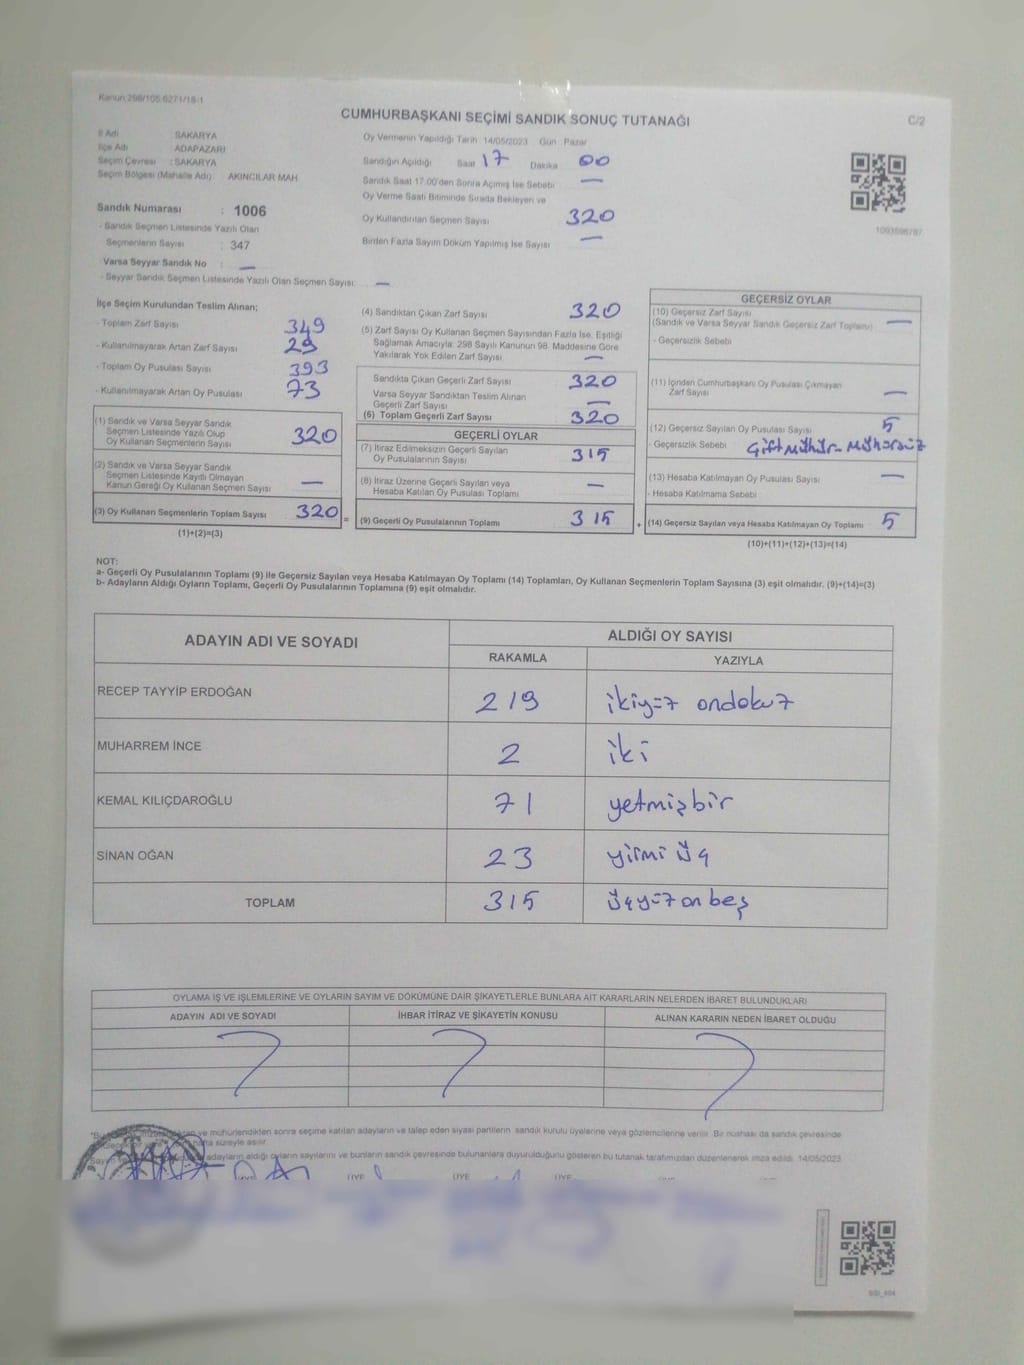 Kanun:298/105 6271/18-1
CUMHURBAŞKANI SEÇİMİ SANDIK SONUÇ TUTANAĞI
C/2
İl Adı : SAKARYA
İlçe Adı : ADAPAZARI
Seçim Çevresi : SAKARYA
Seçim Bölgesi (Mahalle Adı) : AKINCILAR MAH
Sandık Numarası : 1006
- Sandık Seçmen Listesinde Yazılı Olan
Seçmenlerin Sayısı : 347
Varsa Seyyar Sandık No : —
- Seyyar Sandık Seçmen Listesinde Yazılı Olan Seçmen Sayısı: —
Oy Vermenin Yapıldığı Tarih 14/05/2023 Gün Pazar
Sandığın Açıldığı Saat 17 Dakika 00
Sandık Saat 17.00'den Sonra Açılmış İse Sebebi —
Oy Verme Saati Bitiminde Sırada Bekleyen ve
Oy Kullandırılan Seçmen Sayısı 320
Birden Fazla Sayım Döküm Yapılmış İse Sayısı —
İlçe Seçim Kurulundan Teslim Alınan;
- Toplam Zarf Sayısı 349
- Kullanılmayarak Artan Zarf Sayısı 29
- Toplam Oy Pusulası Sayısı 393
- Kullanılmayarak Artan Oy Pusulası 73
(1) Sandık ve Varsa Seyyar Sandık
Seçmen Listesinde Yazılı Olup
Oy Kullanan Seçmenlerin Sayısı 320
(2) Sandık ve Varsa Seyyar Sandık
Seçmen Listesinde Kayıtlı Olmayan
Kanun Gereği Oy Kullanan Seçmen Sayısı —
(3) Oy Kullanan Seçmenlerin Toplam Sayısı 320
(1)+(2)=(3)
=
(4) Sandıktan Çıkan Zarf Sayısı 320
(5) Zarf Sayısı Oy Kullanan Seçmen Sayısından Fazla İse, Eşitliği
Sağlamak Amacıyla; 298 Sayılı Kanunun 98. Maddesine Göre
Yakılarak Yok Edilen Zarf Sayısı —
Sandıkta Çıkan Geçerli Zarf Sayısı 320
Varsa Seyyar Sandıktan Teslim Alınan
Geçerli Zarf Sayısı —
(6) Toplam Geçerli Zarf Sayısı 320
GEÇERLİ OYLAR
(7) İtiraz Edilmeksizin Geçerli Sayılan
Oy Pusulalarının Sayısı 315
(8) İtiraz Üzerine Geçerli Sayılan veya
Hesaba Katılan Oy Pusulası Toplamı —
(9) Geçerli Oy Pusulalarının Toplamı 315
+
GEÇERSİZ OYLAR
(10) Geçersiz Zarf Sayısı
(Sandık ve Varsa Seyyar Sandık Geçersiz Zarf Toplamı) —
- Geçersizlik Sebebi
(11) İçinden Cumhurbaşkanı Oy Pusulası Çıkmayan
Zarf Sayısı —
(12) Geçersiz Sayılan Oy Pusulası Sayısı 5
- Geçersizlik Sebebi Çift Mühür - Mühürsüz
(13) Hesaba Katılmayan Oy Pusulası Sayısı —
- Hesaba Katılmama Sebebi
(14) Geçersiz Sayılan veya Hesaba Katılmayan Oy Toplamı 5
(10)+(11)+(12)+(13)=(14)
NOT:
a- Geçerli Oy Pusulalarının Toplamı (9) ile Geçersiz Sayılan veya Hesaba Katılmayan Oy Toplamı (14) Toplamları, Oy Kullanan Seçmenlerin Toplam Sayısına (3) eşit olmalıdır. (9)+(14)=(3)
b- Adayların Aldığı Oyların Toplamı, Geçerli Oy Pusulalarının Toplamına (9) eşit olmalıdır.
ADAYIN ADI VE SOYADI
ALDIĞI OY SAYISI
RAKAMLA YAZIYLA
RECEP TAYYİP ERDOĞAN 219 ikiyüz ondokuz
MUHARREM İNCE 2 iki
KEMAL KILIÇDAROĞLU 71 yetmişbir
SİNAN OĞAN 23 yirmi üç
TOPLAM 315 üçyüz on beş
OYLAMA İŞ VE İŞLEMLERİNE VE OYLARIN SAYIM VE DÖKÜMÜNE DAİR ŞİKAYETLERLE BUNLARA AİT KARARLARIN NELERDEN İBARET BULUNDUKLARI
ADAYIN ADI VE SOYADI İHBAR İTİRAZ VE ŞİKAYETİN KONUSU ALINAN KARARIN NEDEN İBARET OLDUĞU
ve mühürlendikten sonra seçime katılan adayların ve talep eden siyasi partilerin sandık kurulu üyelerine veya gözlemcilerine verilir. Bir nüshası da sandık çevresinde
süreyle asılır.
adayların aldığı oyların sayılarını ve bunların sandık çevresinde bulunanlara duyurulduğunu gösteren bu tutanak tarafımızdan düzenlenerek imza edildi. 14/05/2023
ÜYE ÜYE ÜYE